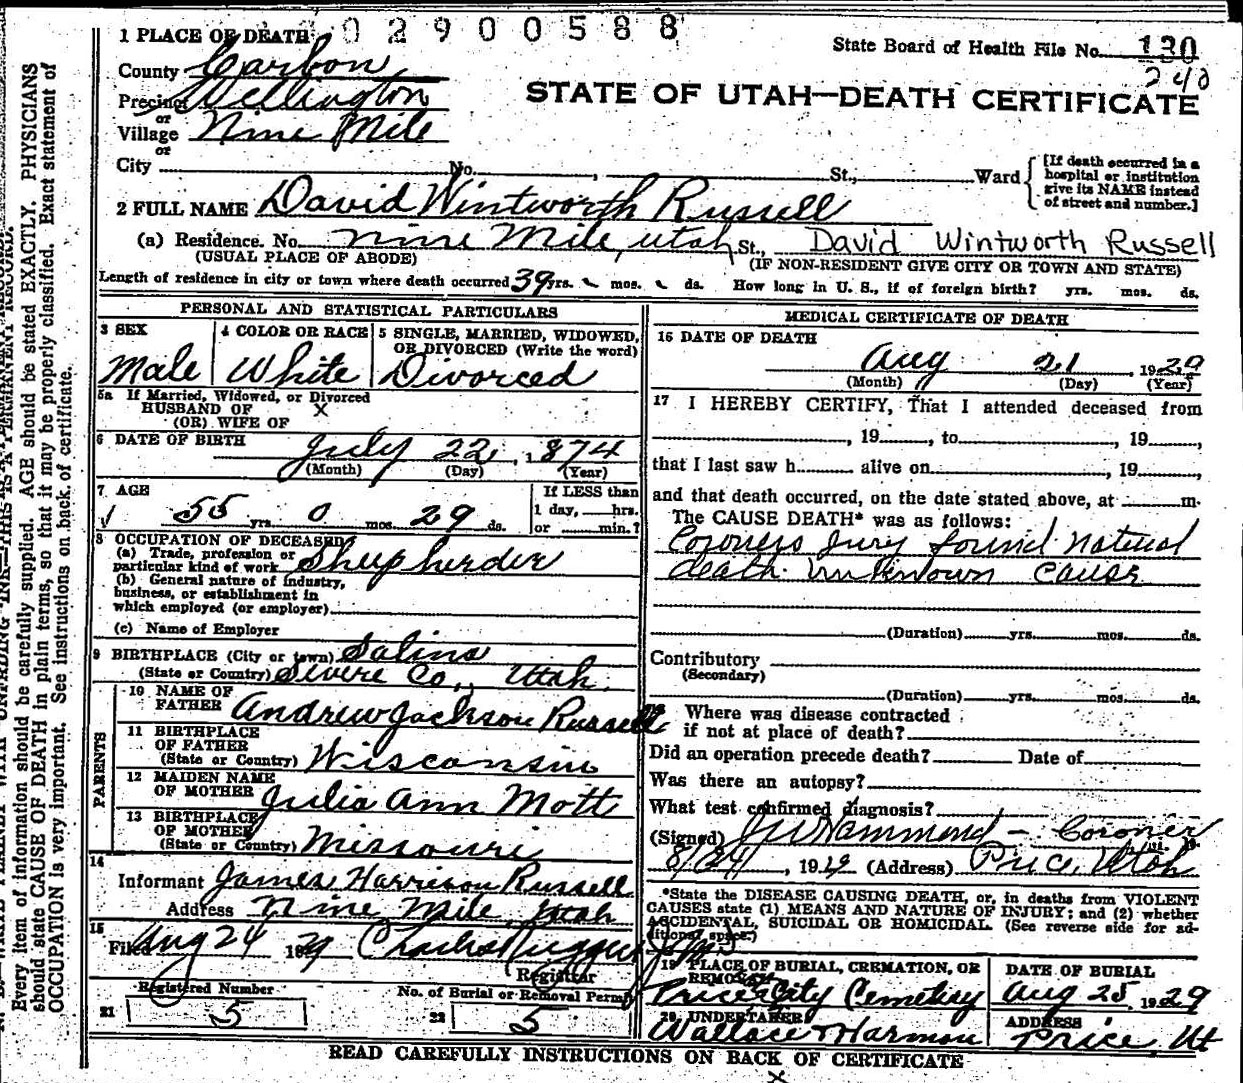 02900588
1 PLACE OF DEATH
State Board of Health File No. 130
240
County Carbon
Precinct Wellington
or
Village Nine Mile
or
City No. , St., Ward
[If death occurred in a hospital or institution give its NAME instead of street and number.]
STATE OF UTAH—DEATH CERTIFICATE
2 FULL NAME David Wintworth Russell
(a) Residence. No. Nine Mile, Utah St., David Wintworth Russell
(USUAL PLACE OF ABODE) (IF NON-RESIDENT GIVE CITY OR TOWN AND STATE)
Length of residence in city or town where death occurred 39 yrs. - mos. - ds. How long in U. S., if of foreign birth? yrs. mos. ds.
PERSONAL AND STATISTICAL PARTICULARS
3 SEX
Male
4 COLOR OR RACE
White
5 SINGLE, MARRIED, WIDOWED, OR DIVORCED (Write the word)
Divorced
5a If Married, Widowed, or Divorced
HUSBAND OF
(OR) WIFE OF
X
6 DATE OF BIRTH
July 22, 1874
(Month) (Day) (Year)
7 AGE
55 yrs. 0 mos. 29 ds.
If LESS than
1 day, hrs.
or min.?
8 OCCUPATION OF DECEASED
(a) Trade, profession or
particular kind of work Sheepherder
(b) General nature of industry,
business, or establishment in
which employed (or employer)
(c) Name of Employer
9 BIRTHPLACE (City or town) Salina
(State or Country) Severe Co., Utah.
PARENTS
10 NAME OF
FATHER Andrew Jackson Russell
11 BIRTHPLACE
OF FATHER
(State or Country) Wisconsin
12 MAIDEN NAME
OF MOTHER Julia Ann Mott
13 BIRTHPLACE
OF MOTHER
(State or Country) Missouri
14
Informant James Harrison Russell
Address Nine Mile, Utah
15
Filed Aug 24 1929
Registrar
Registered Number
21 5
No. of Burial or Removal Permit
22 5
MEDICAL CERTIFICATE OF DEATH
16 DATE OF DEATH
Aug 21 1929
(Month) (Day) (Year)
17 I HEREBY CERTIFY, That I attended deceased from
, 19 , to , 19 ,
that I last saw h alive on , 19 ,
and that death occurred, on the date stated above, at m.
The CAUSE DEATH* was as follows:
Coroners Jury found natural
death unknown cause
(Duration) yrs. mos. ds.
Contributory
(Secondary)
(Duration) yrs. mos. ds.
Where was disease contracted
if not at place of death?
Did an operation precede death? Date of
Was there an autopsy?
What test confirmed diagnosis?
(Signed) J W Hammond - Coroner
8/24, 1929 (Address) Price, Utah
*State the DISEASE CAUSING DEATH, or, in deaths from VIOLENT
CAUSES state (1) MEANS AND NATURE OF INJURY; and (2) whether
ACCIDENTAL, SUICIDAL OR HOMICIDAL. (See reverse side for ad-
ditional space.)
19 PLACE OF BURIAL, CREMATION, OR
REMOVAL
Price City Cemetery
DATE OF BURIAL
Aug 25, 1929
20 UNDERTAKER
Wallace & Harmon
ADDRESS
Price, Ut
READ CAREFULLY INSTRUCTIONS ON BACK OF CERTIFICATE
X
Every item of information should be carefully supplied. AGE should be stated EXACTLY. PHYSICIANS
should state CAUSE OF DEATH in plain terms, so that it may be properly classified. Exact statement of
OCCUPATION is very important. See instructions on back of certificate.